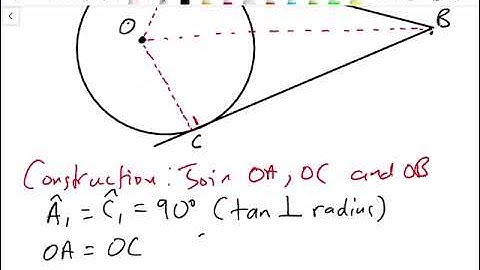 O
B
C
Construction: Join OA, OC and OB
Â₁ = Ĉ₁ = 90° (tan ⊥ radius)
OA = OC